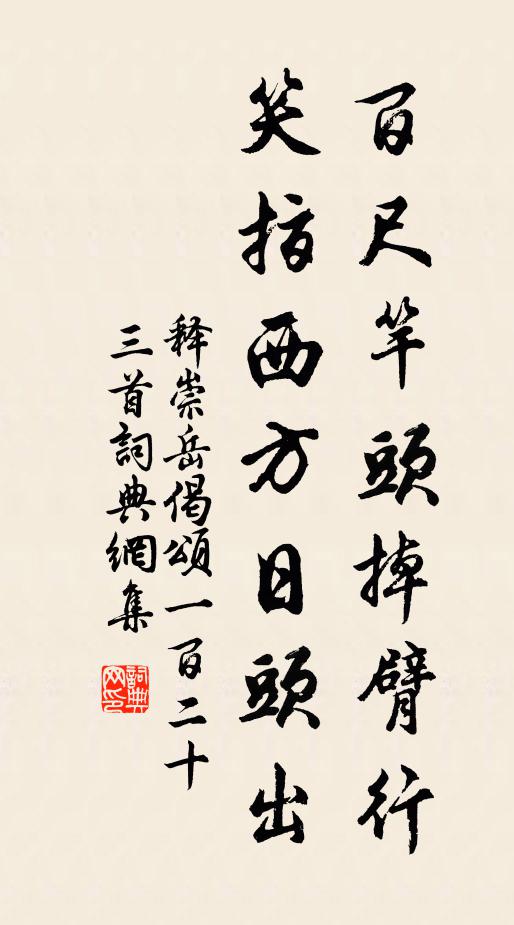 百尺竿頭掉臂行
笑指西方日頭出
释崇岳偈頌一百二十
三首詞典網集
詞典网印